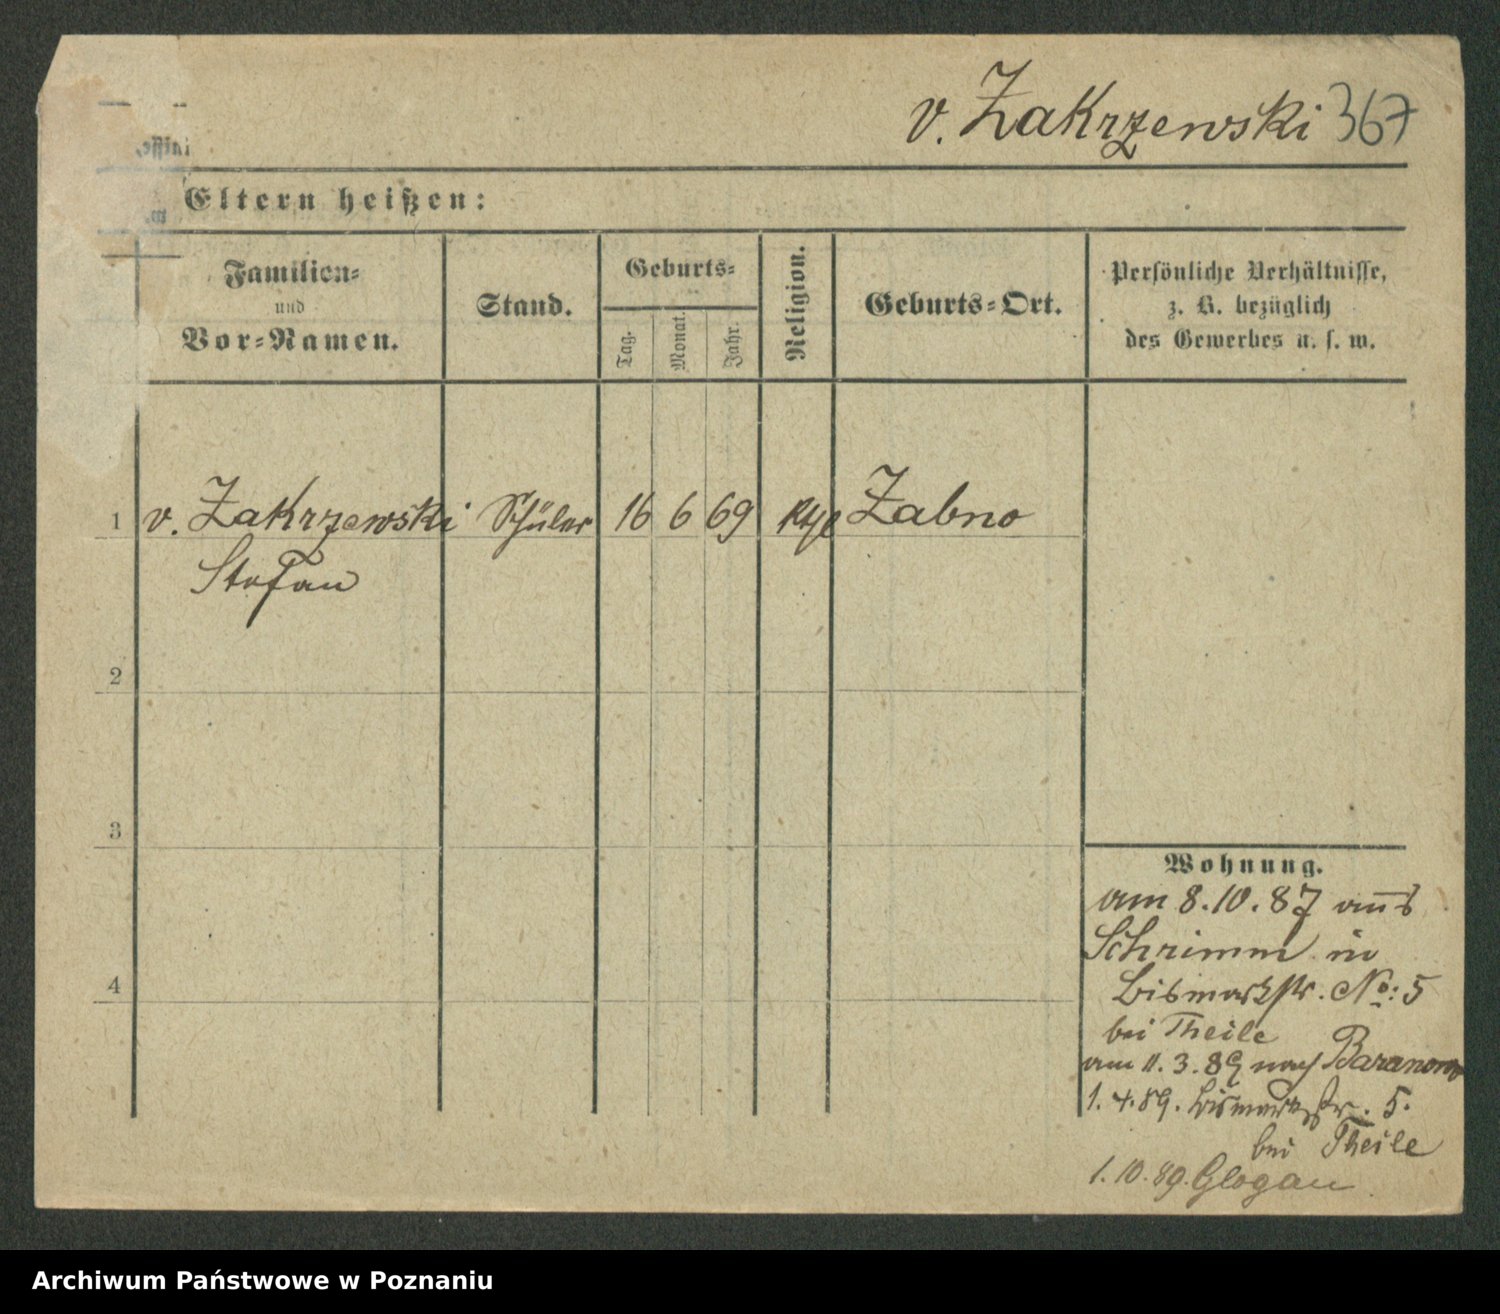 v. Zakrzewski 367
Eltern heißen:
Familien-
und
Vor-Namen.
Stand.
Geburts-
Tag.
Monat.
Jahr.
Religion.
Geburts-Ort.
Persönliche Verhältnisse,
z. B. bezüglich
des Gewerbes u. s. w.
1 v. Zakrzewski Schüler 16 6 69 Zabno
Stefan
2
3
4
Wohnung.
am 8.10.87 aus
Schrimm in
Bismarkstr. No: 5
bei Theile
am 11.3.89 nach Baranowo
1.4.89. Bismarkstr. 5.
bei Theile
1.10.89. Glogau
Archiwum Państwowe w Poznaniu